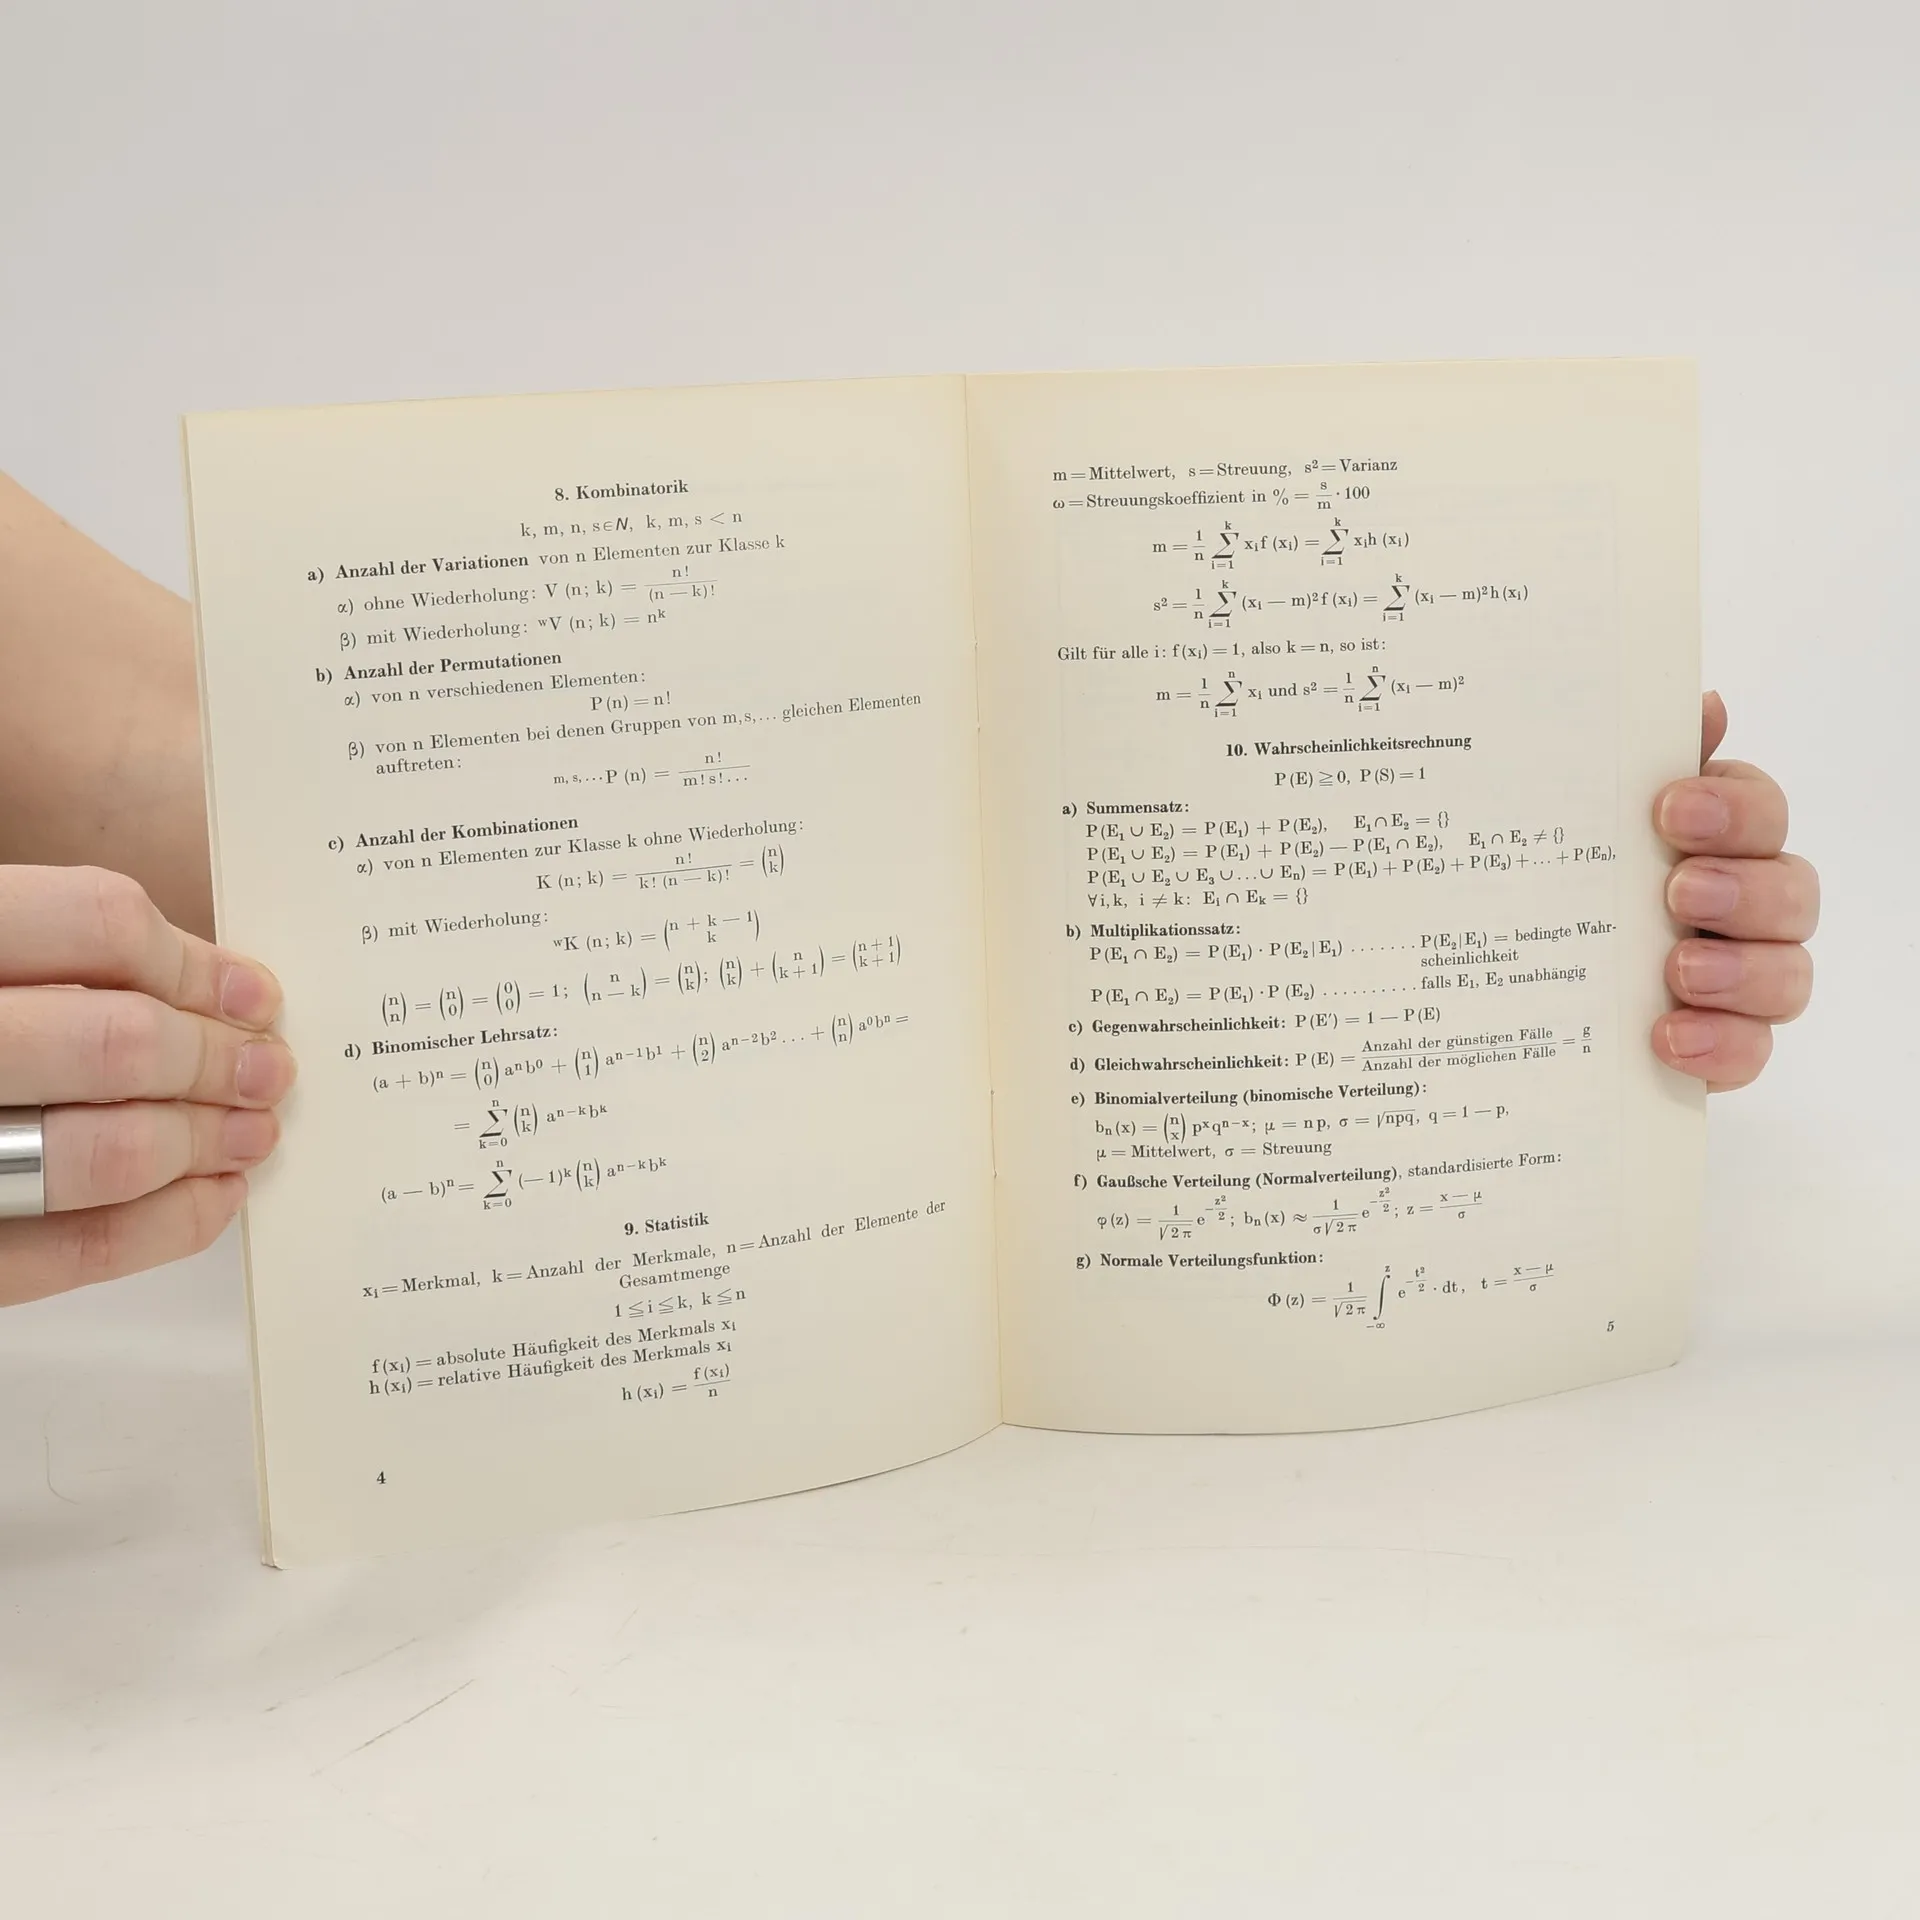 8. Kombinatorik
k, m, n, s∈N, k, m, s < n
a) Anzahl der Variationen von n Elementen zur Klasse k
α) ohne Wiederholung: V (n; k) = n! / (n — k)!
β) mit Wiederholung: ʷV (n; k) = nᵏ
b) Anzahl der Permutationen
α) von n verschiedenen Elementen:
P (n) = n!
β) von n Elementen bei denen Gruppen von m, s, ... gleichen Elementen
auftreten:
m, s, ...P (n) = n! / m! s! ...
c) Anzahl der Kombinationen
α) von n Elementen zur Klasse k ohne Wiederholung:
K (n; k) = n! / k! (n — k)! = (n k)
β) mit Wiederholung:
ʷK (n; k) = (n + k — 1 k)
(n n) = (n 0) = (0 0) = 1; (n n — k) = (n k); (n k) + (n k + 1) = (n + 1 k + 1)
d) Binomischer Lehrsatz:
(a + b)ⁿ = (n 0) aⁿb⁰ + (n 1) aⁿ⁻¹b¹ + (n 2) aⁿ⁻²b² ... + (n n) a⁰bⁿ =
= ∑ k=0 n (n k) aⁿ⁻ᵏbᵏ
(a — b)ⁿ = ∑ k=0 n (—1)ᵏ (n k) aⁿ⁻ᵏbᵏ
9. Statistik
xᵢ = Merkmal, k = Anzahl der Merkmale, n = Anzahl der Elemente der
Gesamtmenge
1 ≦ i ≦ k, k ≦ n
f (xᵢ) = absolute Häufigkeit des Merkmals xᵢ
h (xᵢ) = relative Häufigkeit des Merkmals xᵢ
h (xᵢ) = f (xᵢ) / n
4
m = Mittelwert, s = Streuung, s² = Varianz
ω = Streuungskoeffizient in % = s / m · 100
m = 1/n ∑ i=1 k xᵢf (xᵢ) = ∑ i=1 k xᵢh (xᵢ)
s² = 1/n ∑ i=1 k (xᵢ — m)² f (xᵢ) = ∑ i=1 k (xᵢ — m)² h (xᵢ)
Gilt für alle i: f (xᵢ) = 1, also k = n, so ist:
m = 1/n ∑ i=1 n xᵢ und s² = 1/n ∑ i=1 n (xᵢ — m)²
10. Wahrscheinlichkeitsrechnung
P (E) ≧ 0, P (S) = 1
a) Summensatz:
P (E₁ ∪ E₂) = P (E₁) + P (E₂), E₁ ∩ E₂ = {}
P (E₁ ∪ E₂) = P (E₁) + P (E₂) — P (E₁ ∩ E₂), E₁ ∩ E₂ ≠ {}
P (E₁ ∪ E₂ ∪ E₃ ∪ ... ∪ Eₙ) = P (E₁) + P (E₂) + P (E₃) + ... + P (Eₙ),
∀ i, k, i ≠ k: Eᵢ ∩ Eₖ = {}
b) Multiplikationssatz:
P (E₁ ∩ E₂) = P (E₁) · P (E₂ | E₁) ....... P (E₂ | E₁) = bedingte Wahr-
scheinlichkeit
P (E₁ ∩ E₂) = P (E₁) · P (E₂) .......... falls E₁, E₂ unabhängig
c) Gegenwahrscheinlichkeit: P (E') = 1 — P (E)
d) Gleichwahrscheinlichkeit: P (E) = Anzahl der günstigen Fälle / Anzahl der möglichen Fälle = g / n
e) Binomialverteilung (binomische Verteilung):
bₙ (x) = (n x) pˣqⁿ⁻ˣ; μ = n p, σ = √npq, q = 1 — p,
μ = Mittelwert, σ = Streuung
f) Gaußsche Verteilung (Normalverteilung), standardisierte Form:
φ (z) = 1 / √2π e^(−z²/2); bₙ (x) ≈ 1 / σ√2π e^(−z²/2); z = x — μ / σ
g) Normale Verteilungsfunktion:
Φ (z) = 1 / √2π ∫ −∞ z e^(−t²/2) · dt, t = x — μ / σ
5